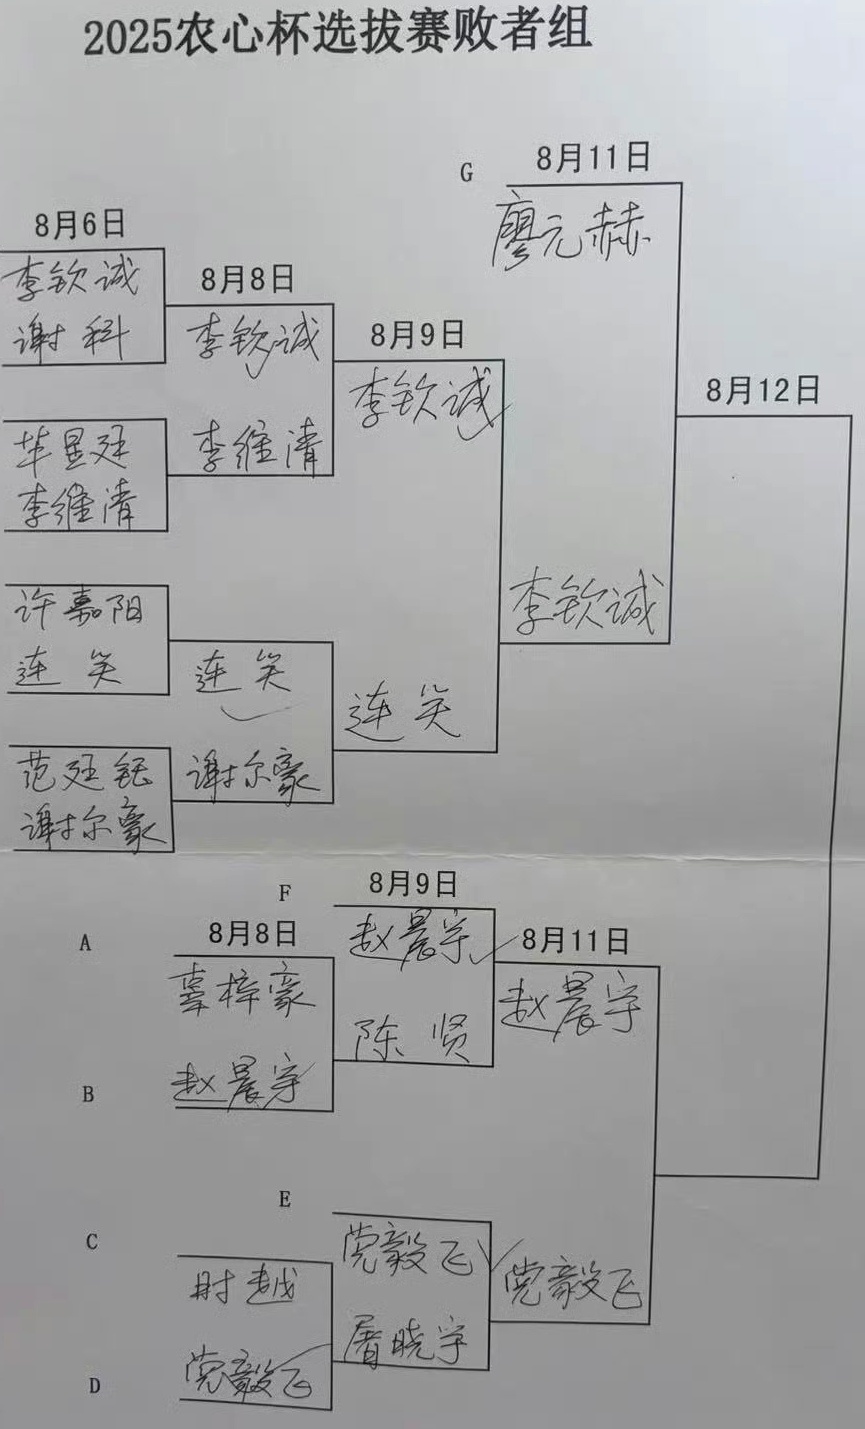 2025农心杯选拔赛败者组
G
8月11日
廖元赫
8月6日
李钦诚
谢科
8月8日
李钦诚
8月9日
李钦诚
8月12日
芈昱廷
李维清
李维清
许嘉阳
连笑
连笑
李钦诚
连笑
范廷钰
谢尔豪
谢尔豪
F
8月9日
A
8月8日
赵晨宇
8月11日
辜梓豪
陈贤
赵晨宇
B
赵晨宇
E
C
党毅飞
时越
党毅飞
屠晓宇
D
党毅飞